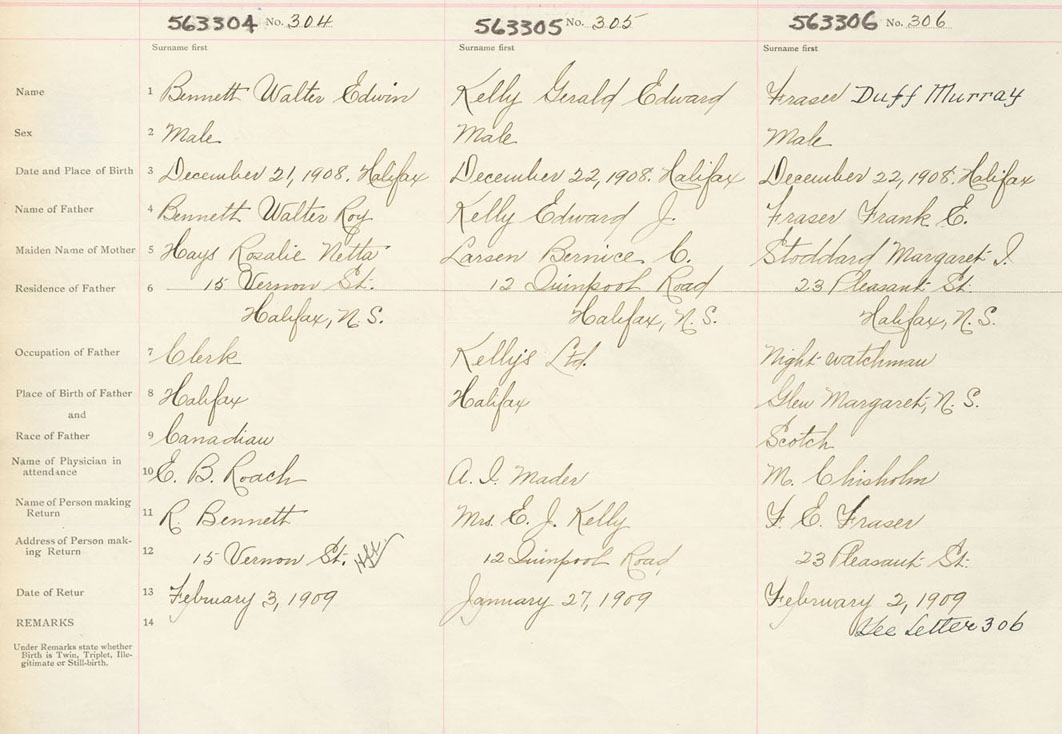 563304 No. 304 563305 No. 305 563306 No. 306
Surname first Surname first Surname first
Name 1 Bennett Walter Edwin Kelly Gerald Edward Fraser Duff Murray
Sex 2 Male Male Male
Date and Place of Birth 3 December 21, 1908. Halifax December 22, 1908. Halifax December 22, 1908. Halifax
Name of Father 4 Bennett Walter Roy Kelly Edward J. Fraser Frank E.
Maiden Name of Mother 5 Hays Rosalie Netta Larsen Bernice C. Stoddard Margaret I.
Residence of Father 6 15 Vernon St. 12 Quinpool Road 23 Pleasant St.
Halifax, N.S. Halifax, N.S. Halifax, N.S.
Occupation of Father 7 Clerk Kelly's Ltd. Night watchman
Place of Birth of Father 8 Halifax Halifax Glen Margaret, N.S.
and
Race of Father 9 Canadian Scotch
Name of Physician in
attendance 10 E. B. Roach A. I. Mader M. Chisholm
Name of Person making
Return 11 R. Bennett Mrs. E. J. Kelly F. E. Fraser
Address of Person mak-
ing Return 12 15 Vernon St. 12 Quinpool Road 23 Pleasant St.
Date of Retur 13 February 3, 1909 January 27, 1909 February 2, 1909
REMARKS 14 See Letter 306
Under Remarks state whether
Birth is Twin, Triplet, Ille-
gitimate or Still-birth.